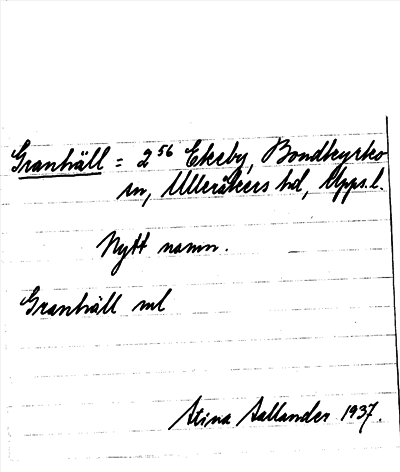 Granhäll = 2⁵⁶ Ekeby, Bondkyrko
sn, Ulleråkers hd, Upps.l.
Nytt namn.
Granhäll ml
Stina Sallander 1937.